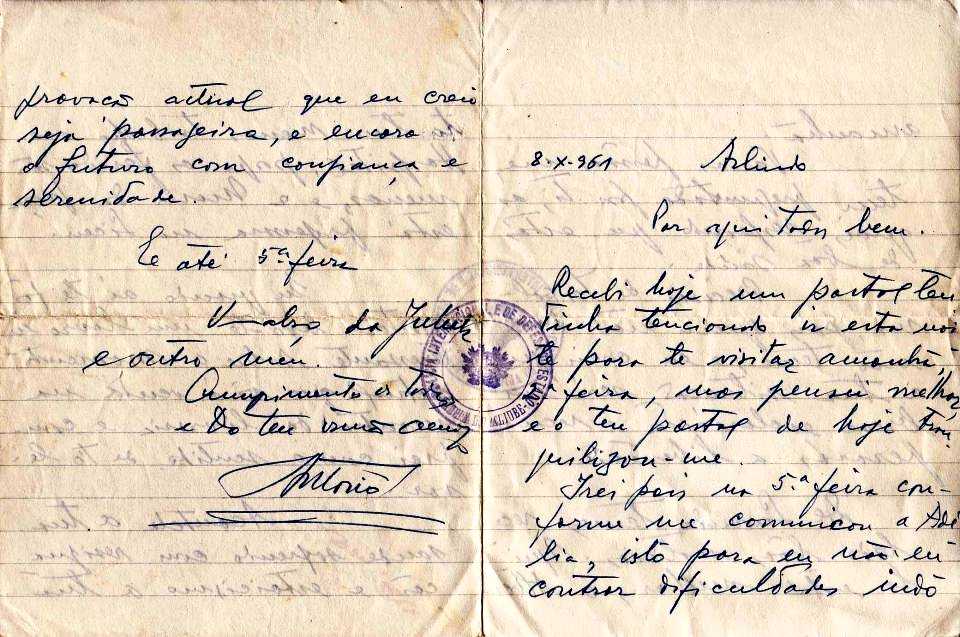 provação actual que eu creio
seja passageira, e encara
o futuro com confiança e
serenidade.
E até 5ª feira
Um abço da
e outro meu.
Cumprimentos a todos
e Do teu irmão amigo
António
8-X-961 Arlindo
Por aqui todos bem.
Recebi hoje um postal teu
Tinha tencionado ir esta noi
te para te visitar amanhã,
feira, mas pensei melhor
e o teu postal de hoje tran-
quilizou-me.
Irei pois na 5ª feira con-
forme me comunicou a Adé
lia, isto para eu não en
contrar dificuldades indo
INTERNACIONAL E DE DEFESA DO ESTADO
ALJUBE